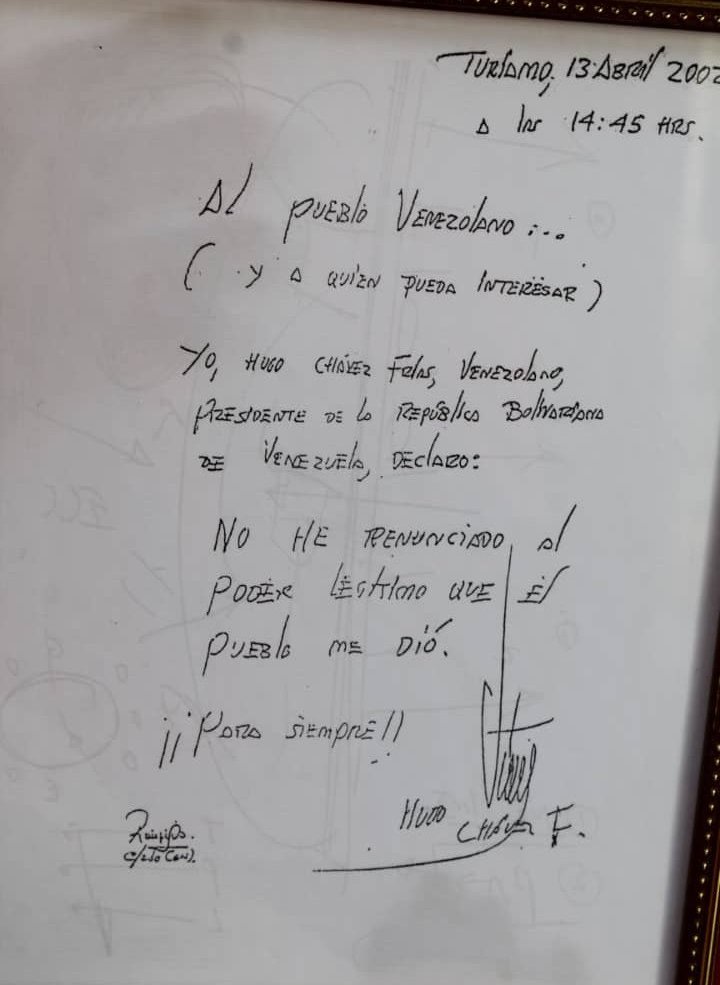 Turiamo, 13 Abril 2002
A las 14:45 HRS.
Al pueblo Venezolano :..
( . y a quién pueda interesar )
Yo, Hugo Chávez Frías, Venezolano,
Presidente de la República Bolivariana
de Venezuela, declaro:
No he renunciado al
poder legítimo que el
pueblo me dió.
¡¡Para siempre!!
Hugo
Chávez F.